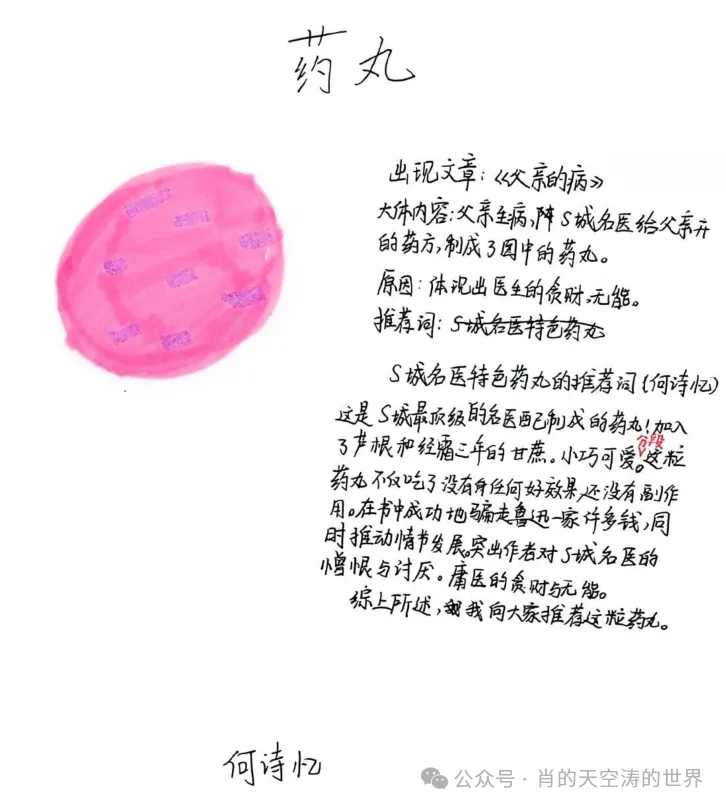 药丸
出现文章:《父亲的病》
大体内容:父亲生病,降S城名医给父亲开
的药方,制成了图中的药丸。
原因:体现出医生的贪财、无能。
推荐词:S城名医特色药丸
S城名医特色药丸的推荐词(何诗忆)
这是S城最顶级的名医配制成的药丸!加入
了芦根和经霜三年的甘蔗。小巧可爱。这粒
分段
药丸不仅吃了没有任何好效果,还没有副作
用。在书中成功地骗走鲁迅一家许多钱,同
时推动情节发展。突出作者对S城名医的
憎恨与讨厌。庸医的贪财与无能。
综上所述,我向大家推荐这粒药丸。
何诗忆
公众号·肖的天空涛的世界